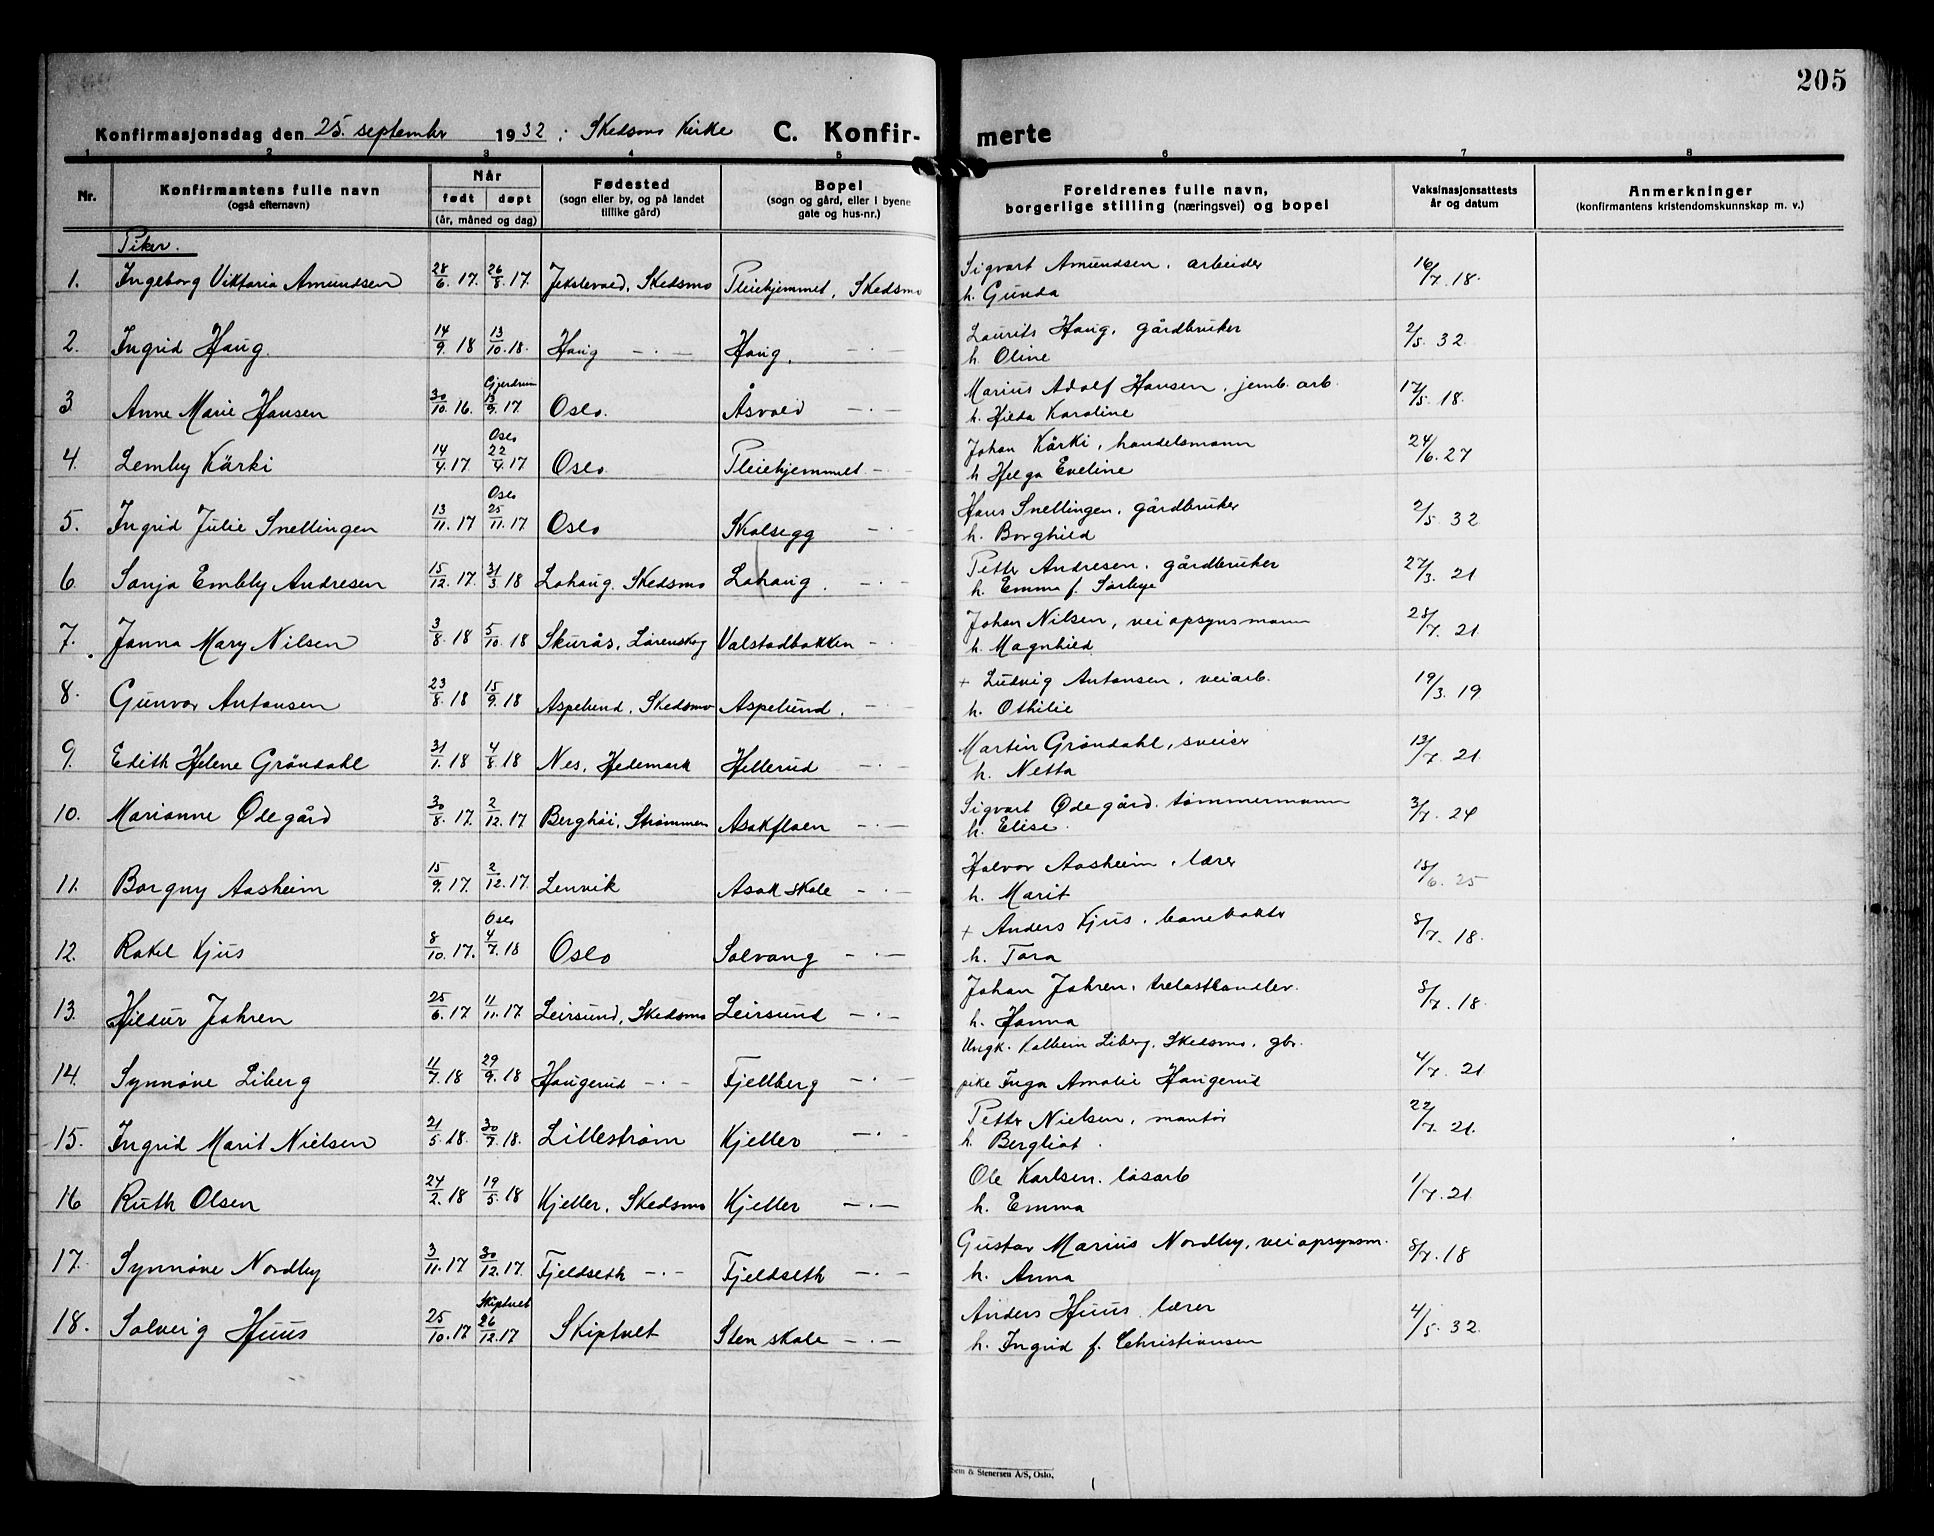 205
Konfirmasjonsdag den 25. september 1932 i Skedsmo Kirke C. Konfir- merte
1 2 3 4 5 6 7 8
Nr. Konfirmantens fulle navn (også efternavn) Når født døpt (år, måned og dag) Fødested (sogn eller by, og på landet tillike gård) Bopel (sogn og gård, eller i byene gate og hus-nr.) Foreldrenes fulle navn, borgerlige stilling (næringsvei) og bopel Vaksinasjonsattests år og datum Anmerkninger (konfirmantens kristendomskunnskap m. v.)
Piker.
1. Ingeborg Viktoria Amundsen 28/6.17. 26/8.17. Jekslevold, Skedsmo Pleiehjemmet, Skedsmo Sigvart Amundsen, arbeider 16/7.18.
h. Gunda
2. Ingrid Haug. 14/9.18 13/10.18. Haug — . — Haug. — . — Laurits Haug, gårdbruker 2/5.32.
h. Oline
3. Anne Marie Hansen 30/10.16. Gjerdrum 13/9.17. Oslo. Åsvold — . — Marius Adolf Hansen, jernb. arb. 17/5.18.
h. Hilda Karoline
4. Lemby Kärki 14/4.17 Oslo 22/4.17 Oslo Pleiehjemmet — . — Johan Kärki, handelsmann 24/6.27
h. Helga Eveline
5. Ingrid Julie Snellingen 13/11.17 Oslo 25/11.17 Oslo Skolsegg — . — Hans Snellingen, gårdbruker 2/5.32
h. Borghild
6. Sonja Embly Andresen 15/12.17. 31/3.18 Lohaug, Skedsmo Lohaug. — . — Petter Andresen, gårdbruker 27/3.21
h. Emma f. Sørbye
7. Janna Mary Nilsen 3/8.18 5/10.18 Skurås, Lørenskog Valstadbakken — . — Johan Nilsen, veiopsynsmann 28/7.21
h. Magnhild
8. Gunvor Antonsen 23/8.18 15/9.18 Aspelund, Skedsmo Aspelund. — . — + Ludvig Antonsen, veiarb. 19/3.19
h. Othilie
9. Edith Helene Gröndahl 31/1.18 4/8.18 Nes, Hedemark Hellerud — . — Martin Gröndahl, sveiser 13/7.21
h. Netta
10. Marianne Ødegård 30/8.17. 2/12.17 Berghöi, Strømmen Asakfloen — . — Sigvart Ødegård, tömmermann 3/7.24
h. Elise.
11. Borgny Aasheim 15/9.17. 2/12.17. Lenvik Asak skole — . — Halvor Aasheim, lærer 18/6.25
h. Marit
12. Rakel Kjus 8/10.17. Oslo 4/7.18 Oslo Solvang — . — + Anders Kjus, banevokter 8/7.18.
h. Tora
13. Hildur Jahren 25/6.17 11/11.17 Leirsund, Skedsmo Leirsund — . — Johan Jahren, trelasthandler. 8/7.18.
h. Hanna
14. Synnøve Liberg 11/7.18 29/9.18 Haugerud — . — Fjellberg — . — Ungk. Kolbein Liberg, Skedsmo, gbr. 4/7.21
pike Inga Amalie Haugerud
15. Ingrid Marit Nielsen 21/5.18. 30/7.18. Lillestrøm Kjeller — . — Petter Nielsen, montør 22/7.21.
h. Bergliot.
16 Ruth Olsen 24/2.18 19/5.18 Kjeller, Skedsmo Kjeller — . — Ole Karlsen, løsarb 1/7.21.
h. Emma
17. Synnøve Nordby 3/11.17 30/12.17. Fjeldseth — . — Fjeldseth — . — Gustav Marius Nordby, veiopsynsm. 8/7.18
h. Anna
18. Solveig Huus 25/10.17 Skiptvet 26/12.17 Skiptvet Sten skole — . — Anders Huus, lærer 4/5.32.
h. Ingrid f. Christiansen
& Stenersen A/S, Oslo.